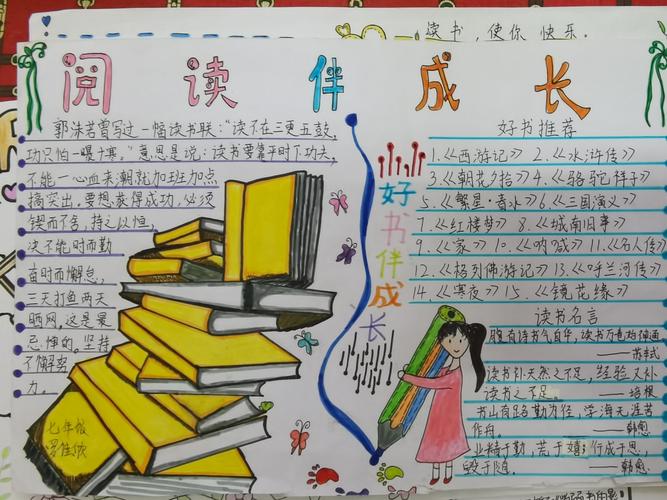 读书,使你 快乐.
阅读伴成长
郭沫若曾写过一幅读书联:“读不在三更五鼓,
功只怕一曝十寒。”意思是说:读书要靠平时下功夫,
不能一心血来潮就加班加点
搞突出.要想获得成功,必须
锲而不舍,持之以恒,
决不能时而勤
奋时而懈怠,
三天打鱼两天
晒网,这是最
忌惮的.坚持
不懈努
力.
七年级
好书伴成长
好书推荐
1.《西游记》 2.《水浒传》
3.《朝花夕拾》 4.《骆驼祥子》
5.《繁星·春水》 6.《三国演义》
7.《红楼梦》 8.《城南旧事》
9.《家》 10.《呐喊》 11.《名人传》
12.《格列佛游记》 13.《呼兰河传》
14.《寒夜》 15.《镜花缘》
读书名言
腹有诗书气自华,读书万卷始通
——苏轼
读书补天然之不足,经验又补
读书之不足. ——培根
书山有路勤为径,学海无涯苦
作舟. ——韩愈
业精于勤,荒于嬉;行成于思,
毁于随. ——韩愈